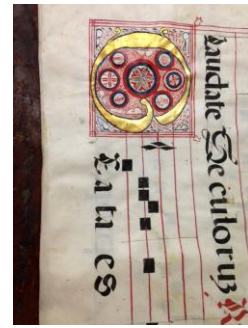 Laudate Seculoruz
Ea ta es